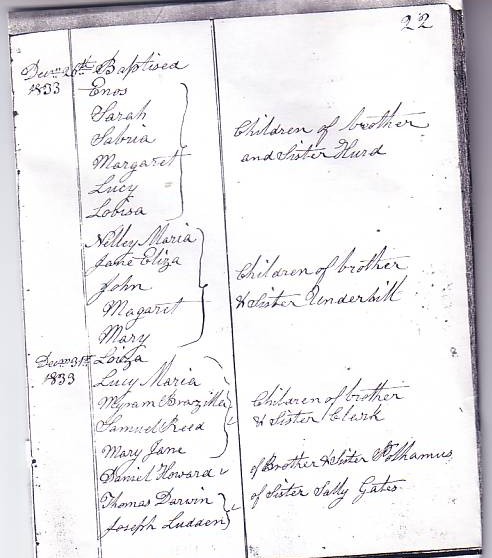 22
Decm 26th Baptised
1833 Enos
Sarah
Sabria
Margaret
Lucy
Lovisa
Children of brother
and Sister Hurd
Nelley Maria
Jane Eliza
John
Magaret
Mary
Children of brother
& Sister Underhill
Decm 31st Loiza
1833 Lucy Maria
Myram Brazilla
Samuel Reed
Mary Jane
Children of brother
& Sister Clerk
Daniel Howard
of Brother & Sister Polhamus
Thomas Darwin
Joseph Ludden
of Sister Sally Gates